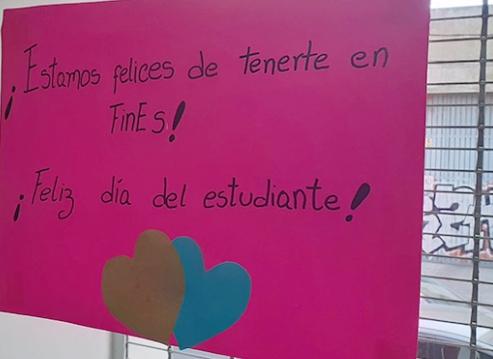 ¡Estamos felices de tenerte en
FinEs!
¡Feliz día del estudiante!